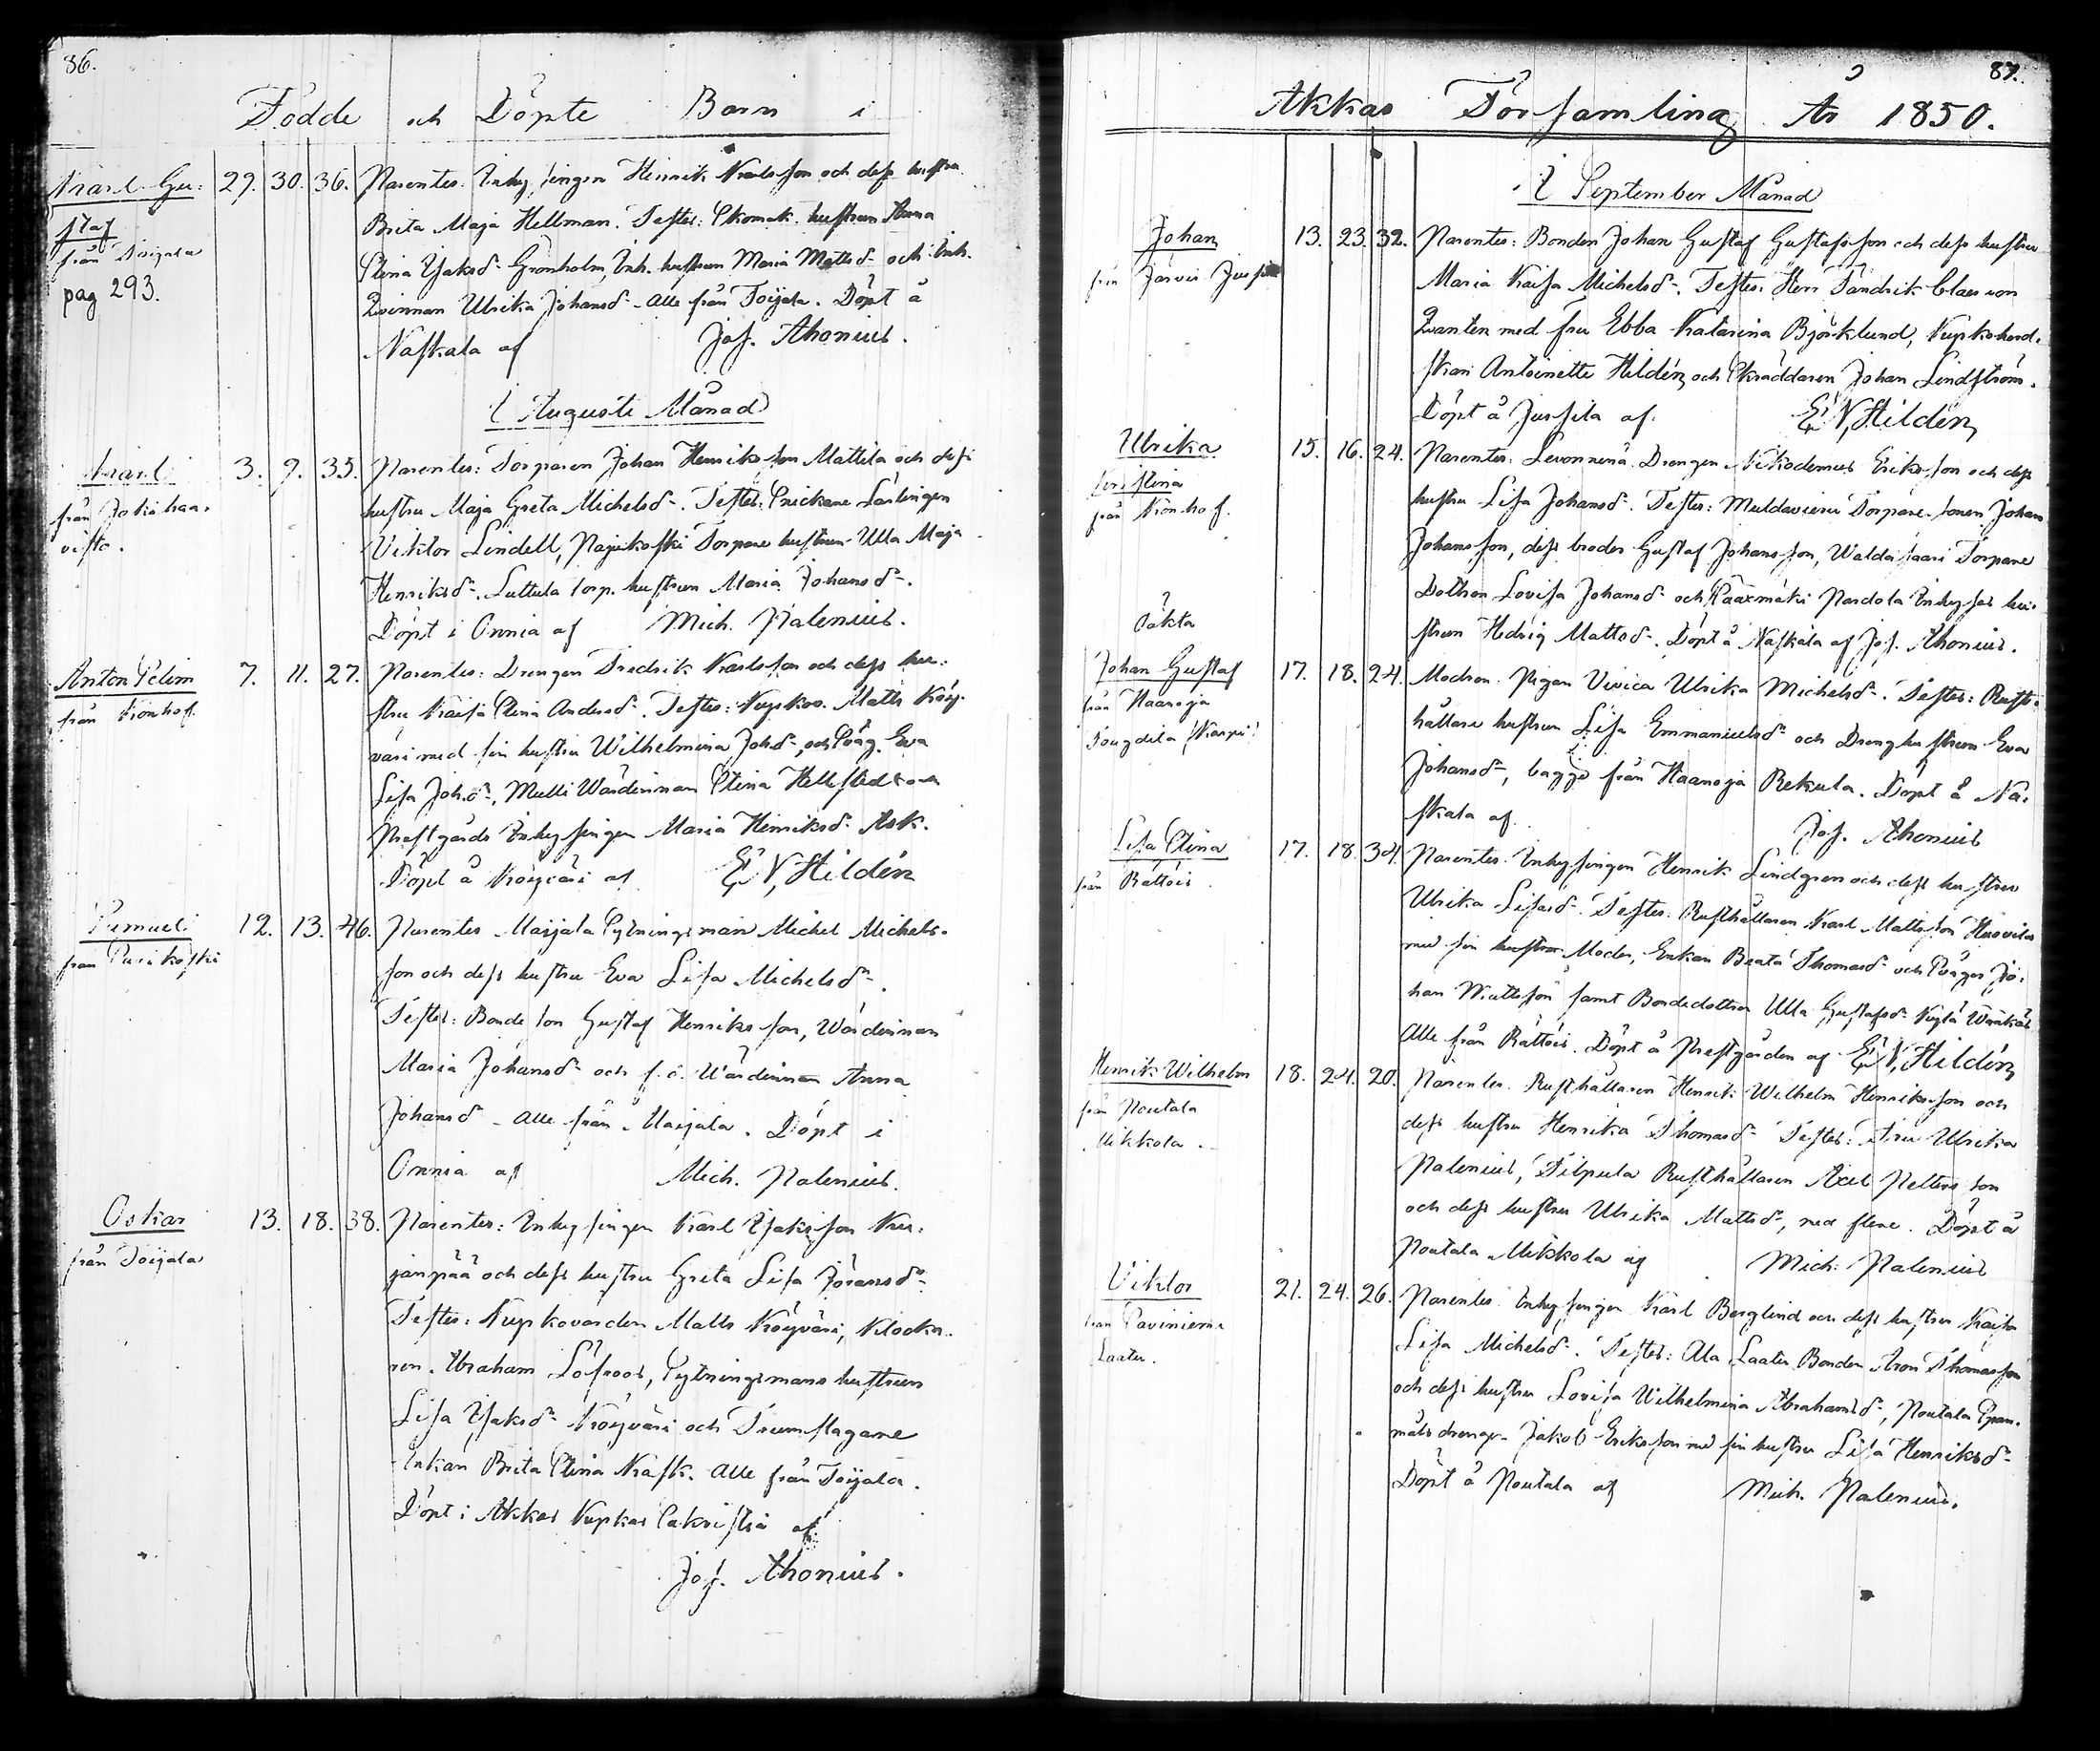 86.
Födde och Döpte Barn i
Karl Gu:
staf
från Toijala
pag 293.
29. 30. 36. Parentes: Inhysingen Henrik Karlsson och dess hustru
Brita Maja Hellman. Testes: Skomak. hustrun Anna
Stina Isaksdr Grönholm, Inh. hustrun Maria Mattsdr och Inh.
Qvinnan Ulrika Johansdr alle från Toijala. Döpt å
Naskala af Jos. Ahonius.
I Augusti Månad
Karl
från Jokihaa-
visto.
3. 9. 35. Parentes: Torparen Johan Henriksson Mattila och dess
hustru Maja Greta Michelsdr. Testes: Snickare Lärlingen
Viktor Lindell, Pajukoski Torpare hustrun Ulla Maja
Henriksdr. Luttula torp. hustrun Maria Johansdr.
Döpt i Onnia af Mich. Palenius.
Anton Selim
från Kronhof.
7. 11. 27. Parentes: Drengen Fredrik Karlsson och dess hu-
stru Kaisa Stina Andersdr. Testes: Kyrkov. Matts Köy-
väri med sin hustru Wilhelmina Johdr och Svåg. Eva
Lisa Johdr, Mulli Wärdinnan Stina Hellstedt och
Prestgårds Inhysingen Maria Henriksdr Ask.
Döpt å Köyväri af E N Hildén
Samuel
från Pusikoski
12. 13. 46. Parentes Maijala Sytningsman Michel Michels-
son och dess hustru Eva Lisa Michelsdr.
Testes: Bonde son Gustaf Henriksson, Wärdinnan
Maria Johansdr och f.d. Wärdinnan Anna
Johansdr alle från Maijala. Döpt i
Onnia af Mich. Palenius.
Oskar
från Toijala
13. 18. 38. Parentes: Inhysingen Karl Isaksson Kur-
janpää och dess hustru Greta Lisa Göransdr
Testes: Kyrkovärden Matts Köyväri, Klocka-
ren Abraham Löfroos, Sytningsmans hustrun
Lisa Isaksdr Köyväri och Trumslagare
Enkan Brita Stina Rask. Alle från Toijala.
Döpt i Akkas Kyrkas Sakristia af
Jos. Ahonius.
87.
Akkas Församling År 1850.
I September Månad
Johan
från Järvis Jussila
13. 23. 32. Parentes: Bonden Johan Gustaf Gustafsson och dess hustru
Maria Kaisa Michelsdr. Testes: Herr Fändrik Claes von
Qvanten med fru Ebba Katarina Björklund, Kyrkoherd-
skan Antoinette Hildén, och Skräddaren Johan Lindström.
Döpt å Jussila af E N Hildén
Ulrika
Kristina
från Kronhof.
15. 16. 24. Parentes: Drengen Nikodemus Eriksson och dess
hustru Lisa Johansdr. Testes: Torpare sonen Johan
Johansson, dess broder Gustaf Johansson, Torpare
Dottren Lovisa Johansdr och Inhyses hu-
strun Hedvig Mattsdr. Döpt å Naskala af Jos. Ahonius.
Oäkta
Johan Gustaf
från Haanoja
17. 18. 24. Modren Pigan Vivica Ulrika Michelsdr. Testes: Rust-
hållare hustrun Lisa Emmanuelsdr och Dreng hustrun Eva
Johansdr, begge från Haanoja Rekula. Döpt å Na-
skala af Jos. Ahonius
Lisa Stina
från Rättöis
17. 18. 34. Parentes Inhysingen Henrik Lindgren och dess hustru
Ulrika Testes: Rusthållaren Karl Mattsson
med sin hustrus Moder, Enkan Beata Thomasdr och Svåger Jo-
han Mattsson samt Bondedottren Ulla Gustafsdr
Alle från Rättöis. Döpt å Prestgården af E N Hildén
Henrik Wilhelm
från Noutala
Mikkola.
18. 24. 20. Parentes. Rusthållaren Henrik Wilhelm Henriksson och
dess hustru Henrika Thomasdr Testes: Fru Ulrika
Palenius, Rusthållaren Axel Petters son
och dess hustru Ulrika Mattsdr, med flere. Döpt å
Noutala Mikkola af Mich. Palenius
Viktor
från Saviniemi
Laatu.
21. 24. 26. Parentes. Inhysingen Karl Berglind och dess hustru Kaisa
Lisa Michelsdr. Testes: Ala Laatu Bonden Aron Thomasson
och dess hustru Lovisa Wilhelmina Abrahamsdr, Noutala Span-
måls drengen Jakob Eriksson med sin hustru Lisa Henriksdr
Döpt å Noutala af Mich. Palenius.